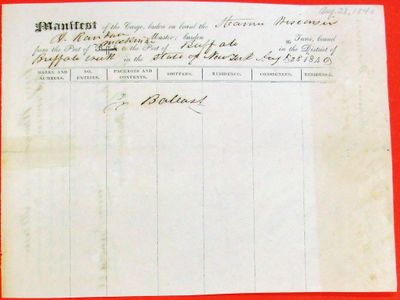 Aug. 28, 1840
Manifest of the Cargo, laden on board the Steamer Wisconsin
Master, burden Tons, bound
from the Port of Mackinac to the Port of Buffalo in the District of
Buffalo Creek in the State of New York Aug 28 1840
MARKS AND NUMBERS. NO. ENTRIES. PACKAGES AND CONTENTS. SHIPPERS. RESIDENCE. CONSIGNEES. RESIDENCE.
Ballast